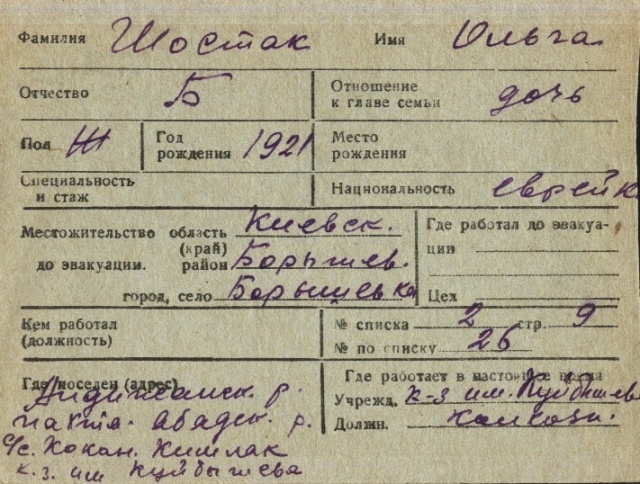 Фамилия Шостак Имя Ольга
Отчество Б Отношение к главе семьи дочь
Пол Ж Год рождения 1921 Место рождения
Специальность и стаж Национальность еврейка
Местожительство область Киевск. Где работал до эвакуа-
(край) ции
до эвакуации. район Барышев.
город, село Барышевка Цех
Кем работал № списка 2 стр. 9
(должность) № по списку 26
Где поселен (адрес) Где работает в настоящее время
Андижанск. р. Учрежд. к-з им. Куйбышева
Пахта-Абадск. р. Должн.
с/с. Кокан. Кишлак
к. з. им Куйбышева